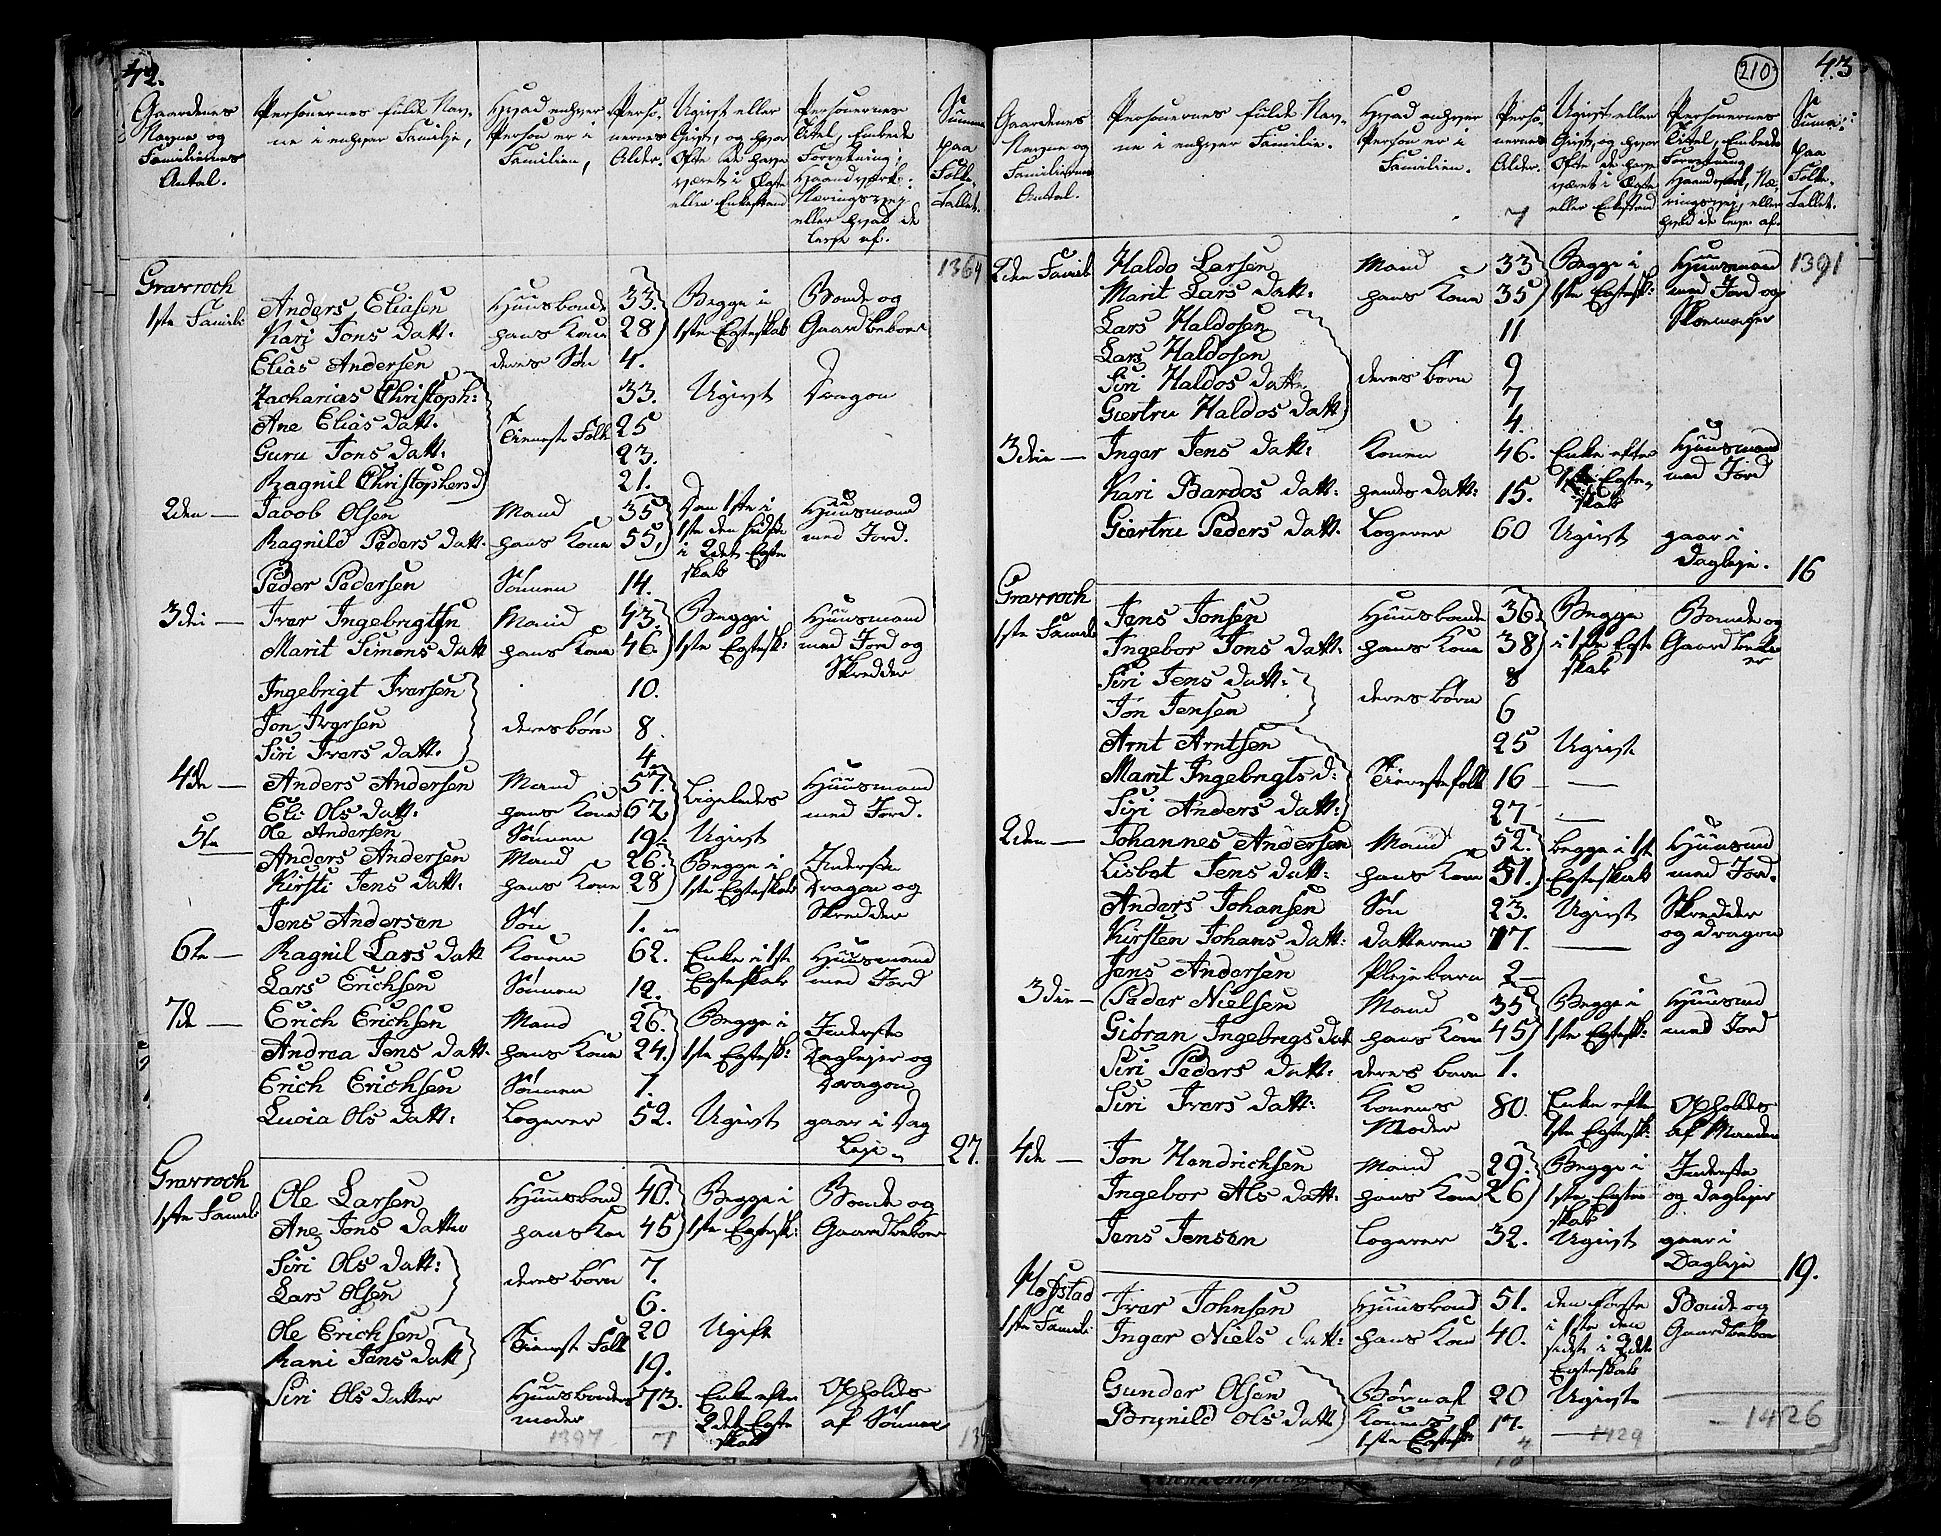 42.
Gaardenes Navne og Familiernes Antal.
Personernes fulde Navne i enhver Familie,
Hvad enhver Person er i Familien,
Personernes Alder.
Ugivt eller Givt, og hvor Ofte de have været i Ægte eller Enkestand
Personernes Titel, Embede Forretning, Haandværk, Næringsvej eller hvad de leve af.
Summa paa Folke-Tallet.
1364
Gravroch
1ste Famili Anders Eliasen Huusbonde 33. Begge i Bonde og
Kari Jons Datt. hans Kone 28 1ste Egteskab Gaardbeboer
Elias Andersen deres Søn 4.
Zacharias Christoph: 33. Ugivt Dragon
Ane Elias datt. Tieneste Folk 25
Guru Jons Datt: 23.
Ragnil Christophersd 21.
2den — Jacob Olsen Mand 35 Den 1ste i Huusmand
Ragnild Peders Datt. hans Kone 55, 1ste den sidste med Jord.
i 2det Egte
skab
Peder Pedersen Sønnen 14.
3die — Iver Ingebrigtsen Mand 43. Begge i Huusmand
Marit Simons Datt hans Kone 46. 1ste Egtesk: med Jord og
Skredder
Ingebrigt Ivarsen 10.
Jon Ivarsen deres børn 8.
Siri Ivers Datt. 4
4de — Anders Andersen Mand 57. Ligeledes Huusmand
Eli Ols Datt: hans Kone 62 med Jord.
5te Ole Andersen Sønnen 19. Ugivt
Anders Andersen Mand 26. Begge i Inderste
Kirsti Jens Datt: hans Kone 28 1ste Egteskab Dragon og
Jens Andersen Søn 1. Skredder
6te — Ragnil Lars Datt Konen 62. Enke i 1ste Huusmand
Lars Erichsen Sønnen 12. Egteskab med Jord
7de — Erich Erichsen Mand 26. Begge i Inderste
Andrea Jens Datt. hans Kone 24. 1ste Egtesk: Daglejer og
Erich Erichsen Sønnen 1. Dragon
Lucia Ols Datt: Logerer 52. Ugivt gaar i Dag
Leje 27.
Gravroch
1ste Famili Ole Larsen Huusbond 40. Begge i Bonde og
Ane Jons Datter hans Kone 45 1ste Egtesk: Gaardbeboer
Siri Ols Datt: 7.
Lars Olsen deres børn 6.
Ole Erichsen Tieneste Folk 20 Ugift
Rani Jens Datt 19.
Siri Ols Datter Huusbondens 73. Enke efter Opholdes
moder 2det Egte af Sønnen
skab
1397 7
210 43
Gaardenes Navne og Familiernes Antal.
Personernes fulde Navne i enhver Familie.
Hvad enhver Person er i Familien.
Personernes Alder.
7
Ugivt eller Givt, og hvor Ofte de have været i Ægte eller Enkestand
Personernes Titel, Embede Forretning Haandværk, Næringsvej, eller hvad de leve af.
Summa paa Folke-Tallet.
2den Famili Haldo Larsen Mand 33 Begge i Huusmand 1391
Marit Lars Datt. hans Kone 35 1ste Egtesk: med Jord og
Lars Haldosen 11 Skoemager
Lars Haldosen 9
Siri Haldos Datt. deres børn 7
Giertru Haldos Datt 4.
3die — Inger Jens Datt: Konen 46. Enke efter Huusmand
Kari Bardos Datt: hendes Datt: 15. 1ste Egte- med Jord
skab
Giertru Peders Datt. Logerer 60 Ugivt gaar i
Dagleje. 16
Gravroch
1ste Famili Jens Jonsen Huusbonde 36. Begge Bonde og
Ingebor Jons Datt: hans Kone 38 i 1ste Egte Gaardbeboer
skab
Siri Jens Datt: 8
Jon Jensen deres børn 6
Arnt Arntsen 25 Ugivt
Marit Ingebrigts D: Tienestefolk 16 —
Siri Anders Datt: 27 —
2den — Johannes Andersen Mand 52. begge i 1st Huusmd
Lisbet Jens Datt: hans Kone 51. Egteskab med Jord.
Anders Johansen Søn 23. Ugivt Skredder
Kirsten Johans Datt: Datteren 17. — og Dragon
Jens Andersen Pleje barn 2 —
3die — Peder Nielsen Mand 35 Begge i Huusmd
Gidran Ingebrigs Datt hans Kone 45 1ste Egtesk: med Jord
Siri Peders Datt: deres barn 1.
Siri Ivers Datt: Konens 80. Enke efter Opholdes
Moder 1ste Egtesk: af Manden
4de — Jon Hendrichsen Mand 29. Begge i Inderste
Ingebor Als Datt: hans Kone 26 1ste Egte og daglejer
skab
Jens Jensen Logerer 32. Ugivt gaar i
Dagleje 19.
Hofstad
1ste Famili Iver Johnsen Huusbond 51. den første Bonde og
Inger Niels Datt: hans Kone 40. i 1ste den Gaardbeboer
sidste i 2det
Egteskab
Gunder Olsen Børn af 20 Ugivte
Brynild Ols Datt Konens 17. —
1ste Egtesk: 4
1426
1429